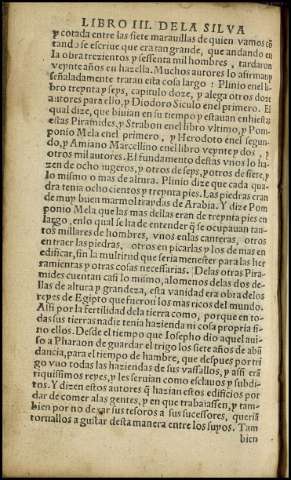 LIBRO III. DE LA SILVA
y cotada entre las siete marauillas de quien vamos cõ
tando se escriue que era tan grande, que andando en
la obra trezientos y sessenta mil hombres, tardaron
veynte años en hazella. Muchos autores lo afirman y
señaladamente tratan esta cosa largo: Plinio enel li-
bro treynta y seys, capitulo doze, y alega otros doze
autores para ello, y Diodoro Siculo enel primero. El
qual dize, que biuian en su tiempo y estauan enhiestas
estas Piramides, y Strabon enel libro vltimo, y Pom-
ponio Mela enel primero, y Herodoto enel segun-
do, y Amiano Marcellino enel libro veynte y dos, y
otros mil autores. El fundamento destas vnos lo ha-
zen de ocho iugeros, y otros de seys, y otros de siete, y
lo mismo o mas de altura. Plinio dize que cada qua-
dra tenia ochocientos y treynta pies. Las piedras eran
de muy buen marmol traydas de Arabia. Y dize Pom
ponio Mela que las mas dellas eran de treynta pies en
largo, enlo qual se ha de entender q̃ se ocupauan tan-
tos millares de hombres, vnos enlas canteras, otros
en traer las piedras, otros en picarlas y los de mas en
edificar, sin la multitud que seria menester para las he
rramientas y otras cosas necessarias. Delas otras Pira-
mides cuentan casi lo mismo, alomenos delas dos de-
llas de altura y grandeza, esta vanidad era obra delos
reyes de Egipto que fueron los mas ricos del mundo.
Assi por la fertilidad dela tierra como, porque en to-
das sus tierras nadie tenia hazienda ni cosa propria si-
no ellos. Desde el tiempo que Iosepho dio aquel aui-
so a Pharaon de guardar el trigo los siete años de abũ
dancia, para el tiempo de hambre, que despues por tri
go vuo todas las haziendas de sus vassallos, y assi erã
riquissimos reyes, y les seruian como esclauos y subdi-
tos. Y dizen estos autores q̃ hazian estos edificios por
dar de comer alas gentes, y en que trabajassen, y tam-
bien por no dexar sus tesoros a sus sucessores, querìã
tornallos a gastar desta manera entre los suyos. Tam
bien